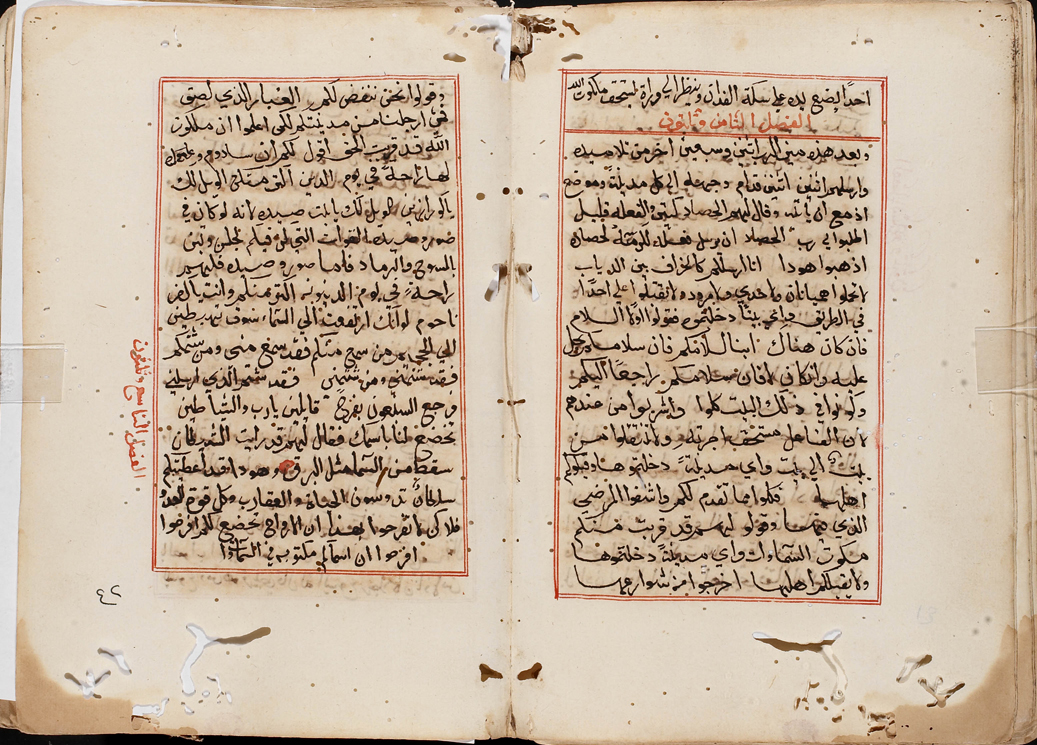 احدًا يضع يده على سكة الفدان وينظر الى وراه يستحق ملكوت الله
الفصل الثامن وثلثون
وبعد هذه ميز الرب اثنين وسبعين اخر من تلاميذه
وارسلهم اثنين اثنين قدام وجهه الى كل مدينة وموضع
ازمع ان ياتيه وقال لهم الحصاد كثير والفعلة قليل
اطلبوا الى رب الحصاد ان يرسل فعلة لحصاده
اذهبوا هودا انا ارسلكم كالخراف بين الدياب
لا تحملوا هميانا ولا حدي ولا مزود ولا تقبلوا على احدًا
في الطريق واي بيتًا دخلتموه فقولوا اولا السلام
فان كان هناك ابن السلام فان سلامكم يحل
عليه وان كان لا فان سلامكم راجعًا اليكم
وكونوا في ذلك البيت كلوا واشربوا من عندهم
لان الفاعل مستحق اجرته ولا تنتقلوا من
بيت الى بيت واي مدينة دخلتموها وقبلوكم
اهلها فكلوا مما تقدم لكم واشفوا المرضى
الذي فيها وقولوا لهم قد قربت منكم
ملكوت السماوات واي مدينة دخلتموها
ولا يقبلكم اهلها اخرجوا من شوارعها
وقولوا نحن ننفض لكم الغبار الذي لصق
في ارجلنا من مدينتكم لكن اعلموا ان ملكوت
الله قد قربت الحق اقول لكم ان سادوم
لها راحة في يوم الدين اكثر من تلك الويل لك
يا كورازين الويل لك يا بيت صيده لانه لو كان في
صور وصيده القوات التي فيكم لجلسوا
بالمسوح والرماد فاما صور وصيده فلهم
راحة في يوم الدينونه اكثر منكم وانت يا كفر
ناحوم لو انك ارتفعت الى السماء سوف تهبطين
الى الجحيم من سمع منكم فقد سمع منى ومن شتمكم
فقد شتمني ومن شتمني فقد شتم الذي ارسلني
ورجع السبعون بفرح قايلين يا رب والشياطين
تخضع لنا باسمك فقال لهم قد رايت الشيطان
سقط من السما مثل البرق وهودا قد اعطيتكم
سلطان تدوسون الحيات والعقارب وكل قوة العدو
فلا كن لا تفرحوا بهذا ان الارواح تخضع لكم افرحوا
افرحوا ان اسماكم مكتوبه في السماوات
الفصل التاسع وثلثون
٤٢